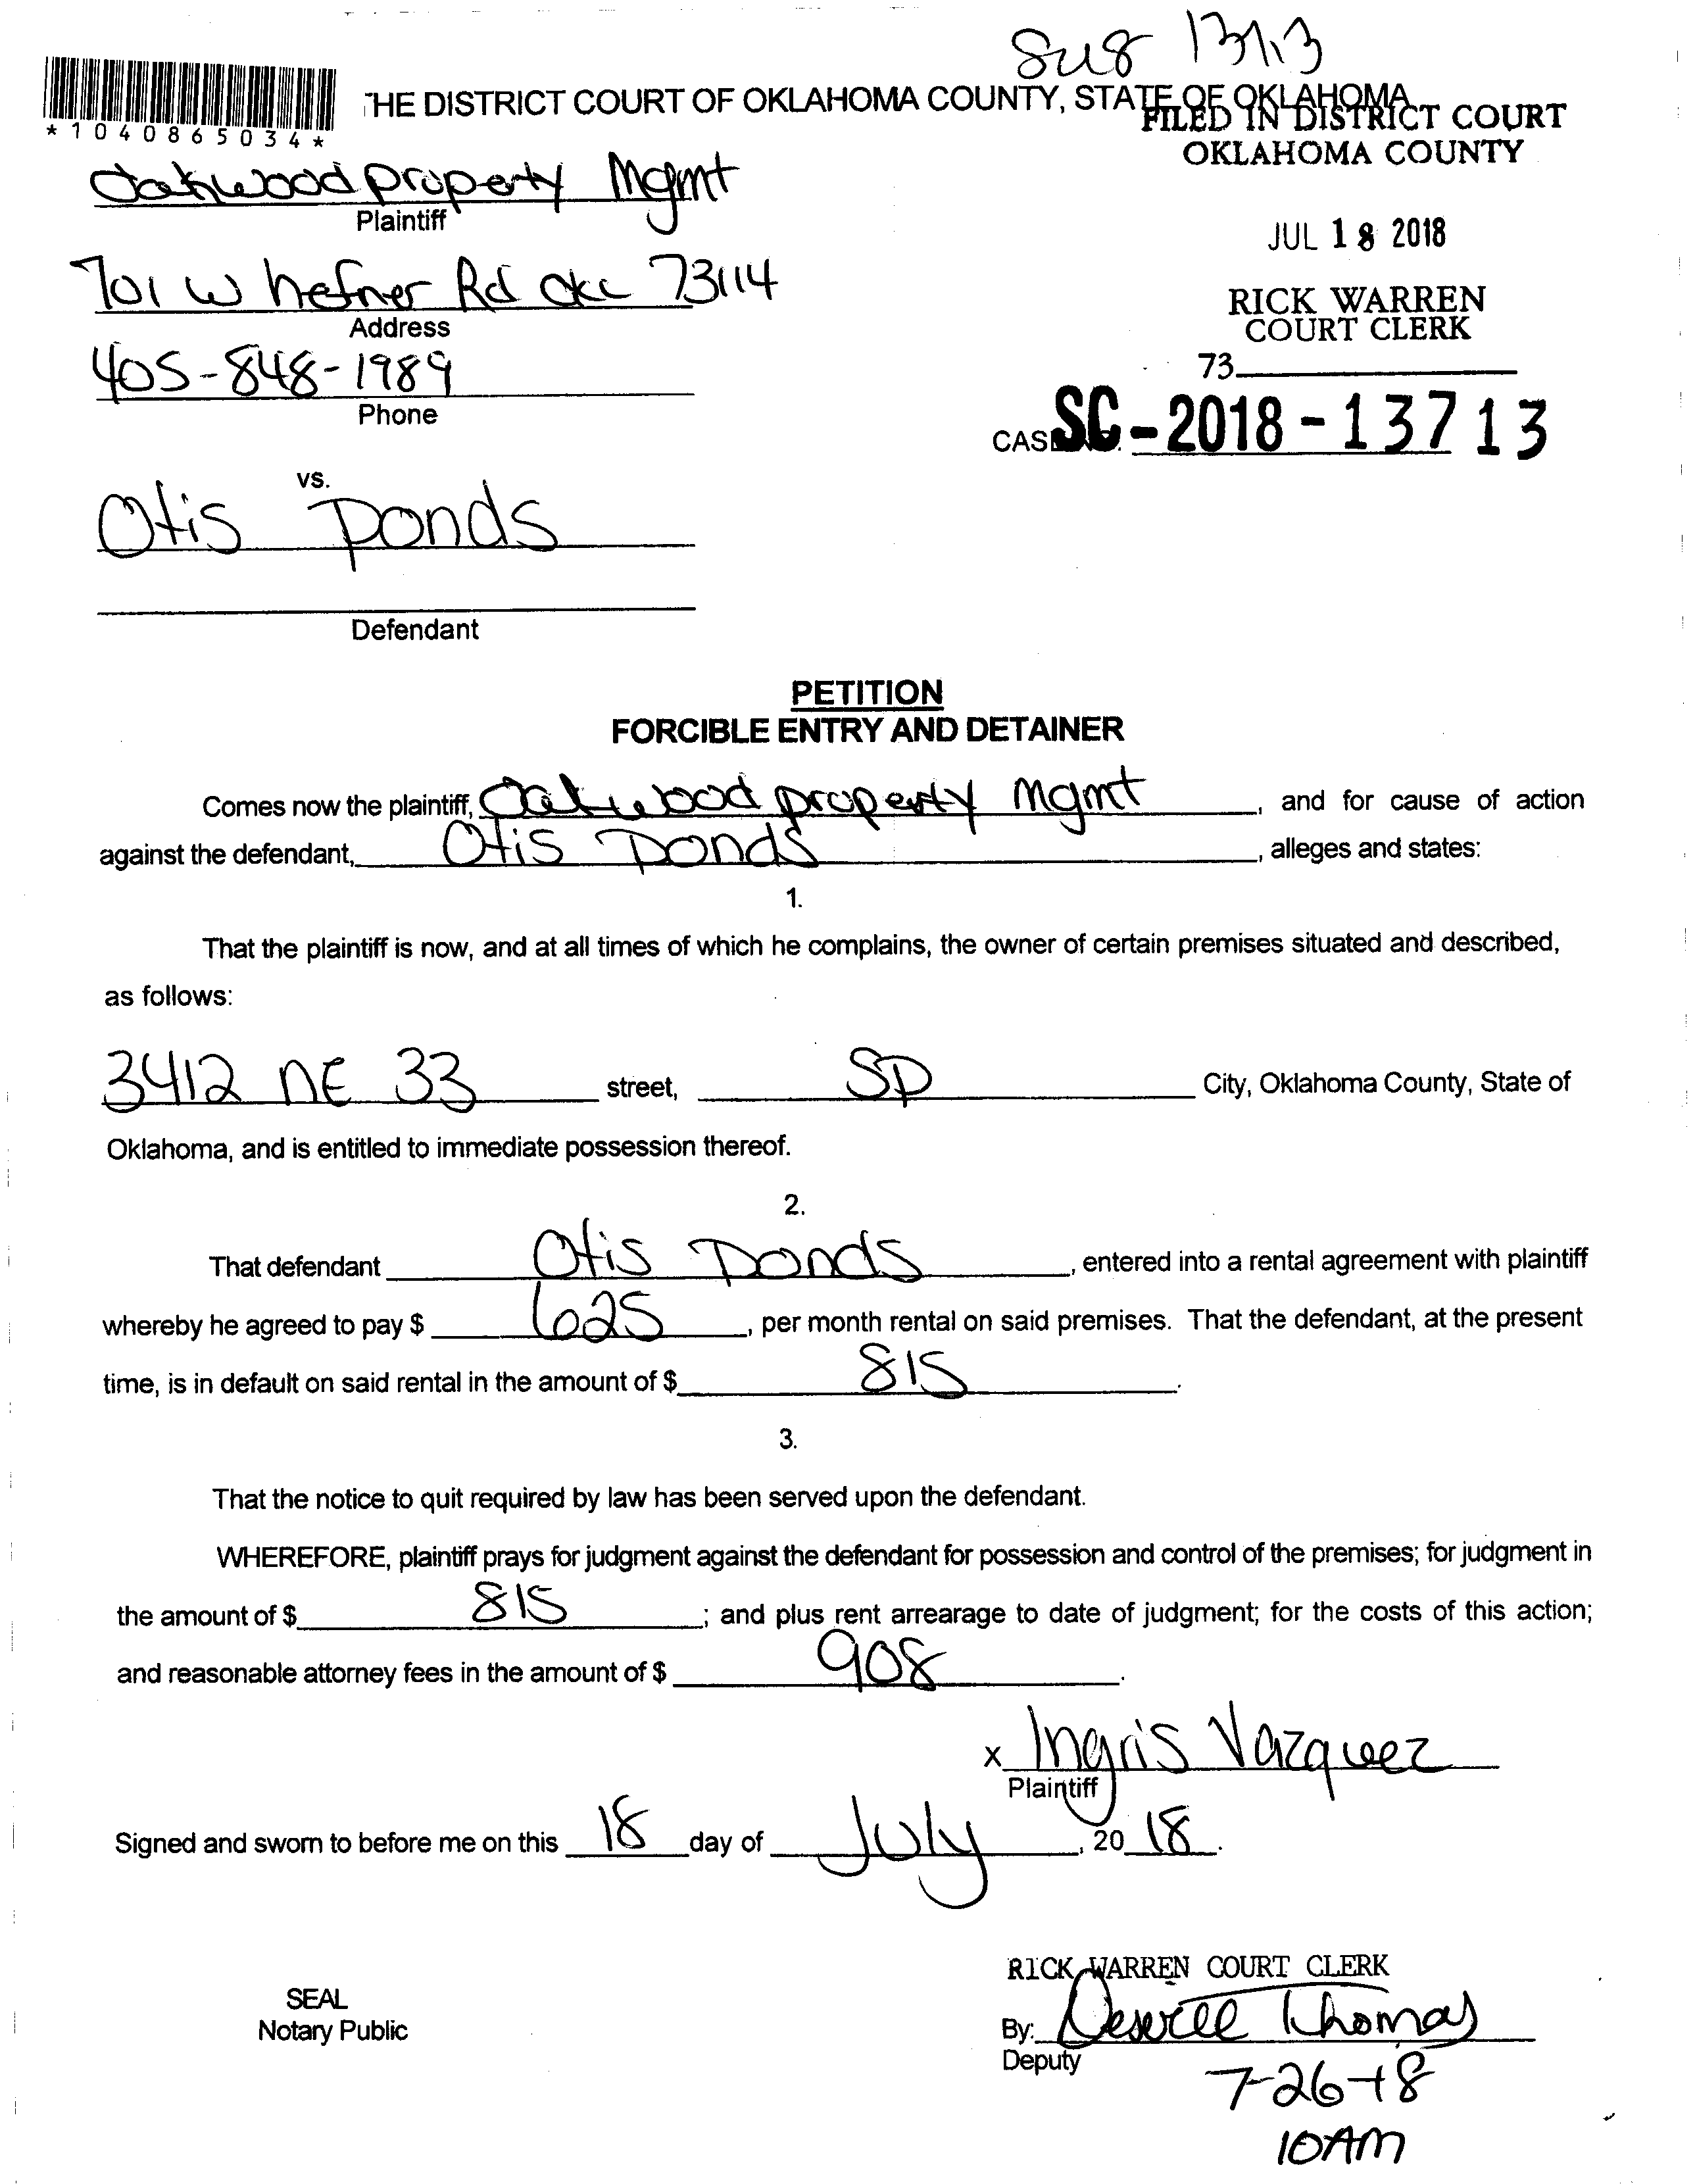 13713
THE DISTRICT COURT OF OKLAHOMA COUNTY, STATE OF OKLAHOMA
*1040865034*
FILED IN DISTRICT COURT
OKLAHOMA COUNTY
Oakwood property Mgmt
Plaintiff
JUL 18 2018
701 W hefner Rd OKC 73114
Address
RICK WARREN
COURT CLERK
405-848-1989
Phone
73
CASE NO. SC-2018-13713
vs.
Otis Ponds
Defendant
PETITION
FORCIBLE ENTRY AND DETAINER
Comes now the plaintiff, Oakwood property Mgmt, and for cause of action
against the defendant, Otis Ponds, alleges and states:
1.
That the plaintiff is now, and at all times of which he complains, the owner of certain premises situated and described,
as follows:
3412 NE 33 street, SP City, Oklahoma County, State of
Oklahoma, and is entitled to immediate possession thereof.
2.
That defendant Otis Ponds, entered into a rental agreement with plaintiff
whereby he agreed to pay $ 625, per month rental on said premises. That the defendant, at the present
time, is in default on said rental in the amount of $ 815.
3.
That the notice to quit required by law has been served upon the defendant.
WHEREFORE, plaintiff prays for judgment against the defendant for possession and control of the premises; for judgment in
the amount of $ 815; and plus rent arrearage to date of judgment; for the costs of this action;
and reasonable attorney fees in the amount of $ 908.
x Ingris Vazquez
Plaintiff
Signed and sworn to before me on this 18 day of July, 20 18.
RICK WARREN COURT CLERK
SEAL
Notary Public
By: Thomas
Deputy
7-26-18
10AM